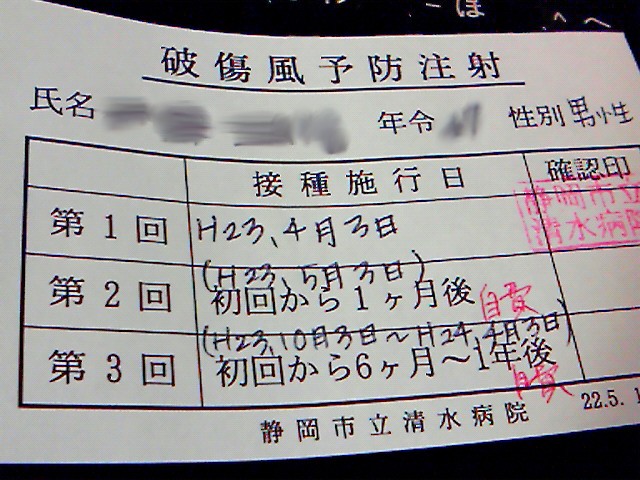 ほ
へへ
破傷風予防注射
氏名 年令 性別 男性
接種施行日 確認印
第1回 H23、4月3日 静岡市立
清水病院
第2回 (H23、5月3日)
初回から1ヶ月後 自費
第3回 (H23、10月3日～H24、4月3日)
初回から6ヶ月～1年後
自費
静岡市立清水病院 22.5.1